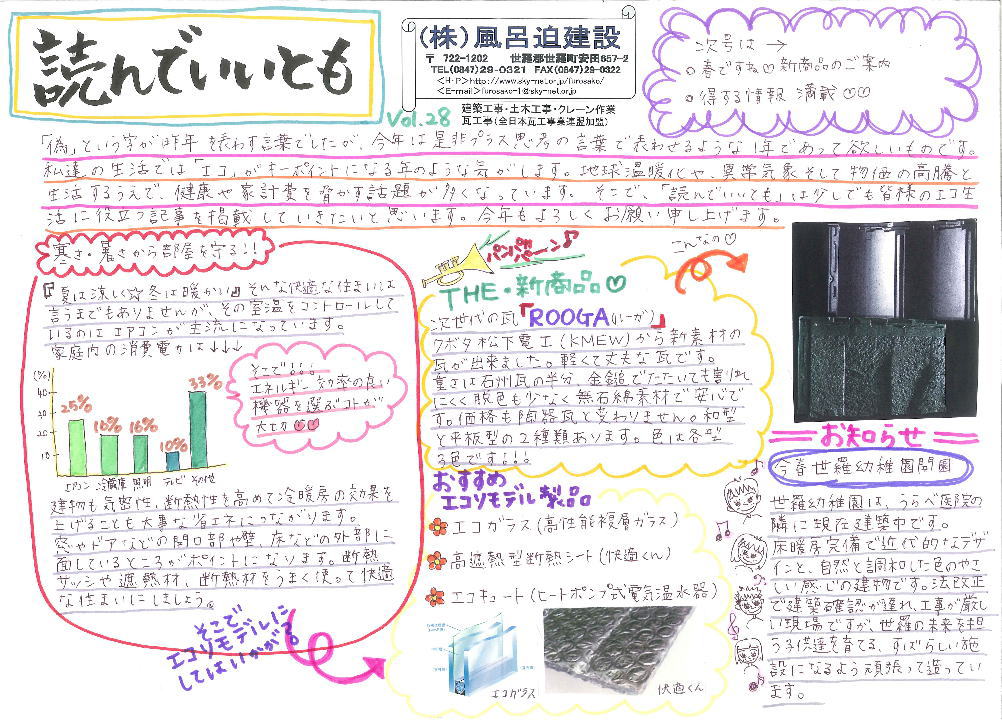 読んでいいとも
Vol.28
(株)風呂迫建設
〒 722-1202 世羅郡世羅町安田657-2
TEL(0847)29-0321 FAX(0847)29-0322
<H・P>http://www.sky-net.or.jp/furosako/
<E-mail>furosako-1@sky-net.or.jp
建築工事・土木工事・クレーン作業
瓦工事(全日本瓦工事業連盟加盟)
次号は →
○春ですね♡新商品のご案内
○得する情報 満載♡♡
「偽」という字が昨年を表わす言葉でしたが、今年は是非プラス思考の言葉で表わせるような1年であって欲しいものです。
私達の生活では「エコ」がキーポイントになる年のような気がします。地球温暖化や、異常気象そして物価の高騰と
生活するうえで、健康や家計費を脅かす話題が多くなっています。そこで、「読んでいいとも」は少しでも皆様のエコ生
活に役立つ記事を掲載していきたいと思います。今年もよろしくお願い申し上げます。
寒さ・暑さから部屋を守る!!
『夏は涼しく☆冬は暖かい』そんな快適な住まいは
言うまでもありませんが、その室温をコントロールして
いるのはエアコンが主流になっています。
家庭内の消費電力は↓↓↓
(%)
40
30
20
10
25%
16%
16%
10%
33%
エアコン 冷蔵庫 照明 テレビ その他
そこで。。。
エネルギー効率の良い
機器を選ぶコトが
大切♡♡
建物も気密性、断熱性を高めて冷暖房の効果を
上げることも大事な省エネにつながります。
窓やドアなどの開口部や壁、床などの外部に
面しているところがポイントになります。断熱
サッシや遮熱材、断熱材をうまく使って快適
な住まいにしましょう。
そこで
エコリモデルに
してはいかが?
パンパカパーン♪
こんなの♡
THE・新商品♡
次世代の瓦「ROOGA(ルーガ)」
クボタ松下電工(KMEW)から新素材の
瓦が出来ました。軽くて丈夫な瓦です。
重さは石州瓦の半分、金鎚でたたいても割れ
にくく脱色も少なく無石綿素材で安心で
す。価格も陶器瓦と変わりません。和型
と平板型の2種類あります。色は各型
3色です!!!
おすすめ
エコリモデル製品
エコガラス(高性能複層ガラス)
高遮熱型断熱シート(快適くん)
エコキュート(ヒートポンプ式電気温水器)
エコガラス
快適くん
お知らせ
今春世羅幼稚園開園
世羅幼稚園は、うらべ医院の
隣に現在建築中です。
床暖房完備で近代的なデザ
インと、自然と調和した色のやさ
しい感じの建物です。法改正
で建築確認が遅れ、工事が厳し
い現場ですが、世羅の未来を担
う子供達を育てる、すばらしい施
設になるよう頑張って造ってい
ます。